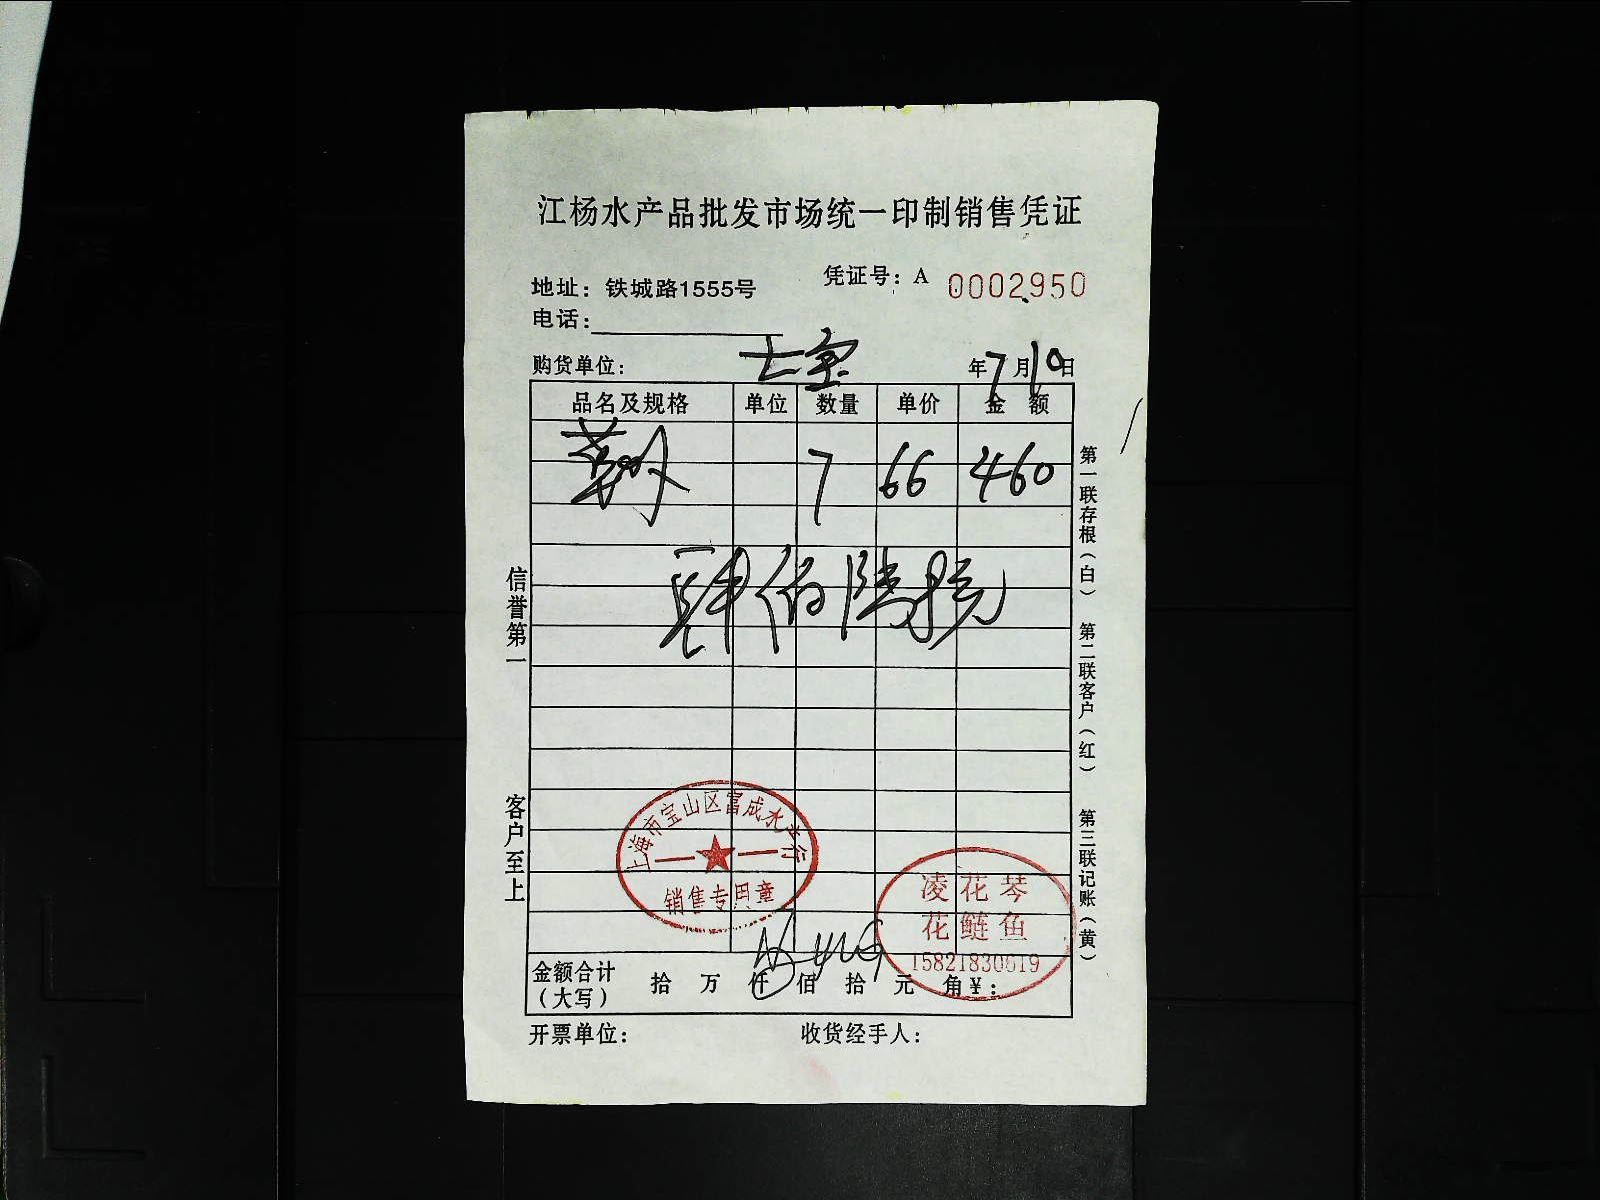 江杨水产品批发市场统一印制销售凭证
地址：铁城路1555号
凭证号：A 0002950
电话：
购货单位：七宝
年7月10日
品名及规格 单位 数量 单价 金额
7 66 460
肆佰陆拾元
信誉第一
客户至上
第一联存根（白） 第二联客户（红） 第三联记账（黄）
上海市宝山区富成水产行
销售专用章
凌花琴
花鲢鱼
15821830619
金额合计（大写） 拾 万 仟 佰 拾 元 角 ¥：
开票单位：
收货经手人：